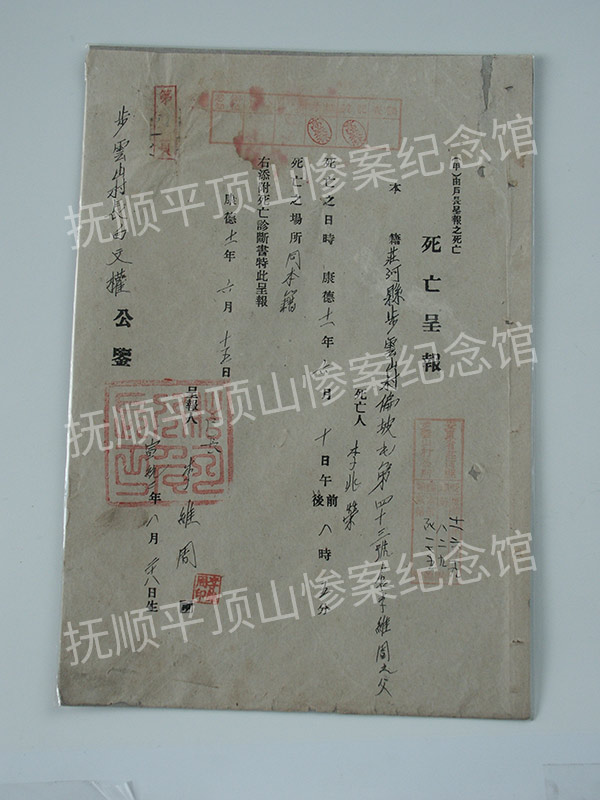 (甲)由戶長呈報之死亡
死亡呈報
本籍 莊河縣步雲山村 屯第四十三號 李維周之父
死亡人 李兆榮
死亡之日時 康德十一年六月十日午前後八時 分
死亡之場所 同本籍
右添附死亡診斷書特此呈報
康德十一年六月十五日
呈報人 李維周
宣統 年八月 八日生
步雲山村長 文權 公鑒
第
抚顺平顶山惨案纪念馆
抚顺平顶山惨案纪念馆
抚顺平顶山惨案纪念馆
抚顺平顶山惨案纪念馆